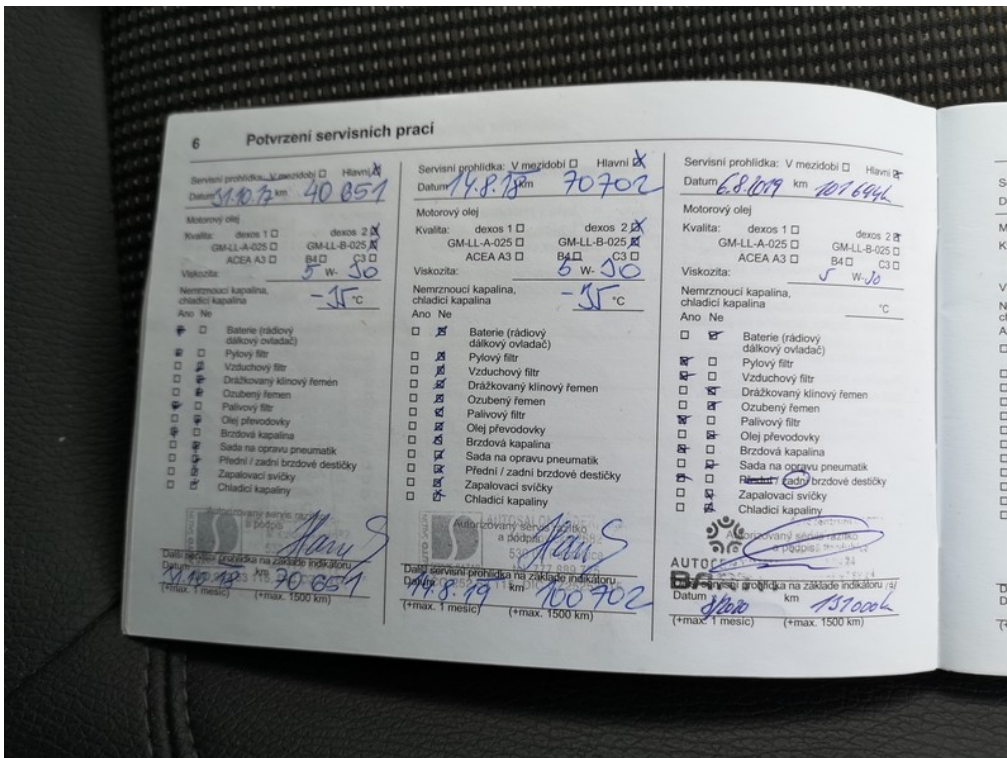 6 Potvrzení servisních prací
Servisní prohlídka: V mezidobí Hlavní
Datum 31.10.17 km 40 651
Motorový olej
Kvalita: dexos 1 dexos 2
GM-LL-A-025 GM-LL-B-025
ACEA A3 B4 C3
Viskozita: 5 W-30
Nemrznoucí kapalina,
chladicí kapalina -35 °C
Ano Ne
Baterie (rádiový
dálkový ovladač)
Pylový filtr
Vzduchový filtr
Drážkovaný klínový řemen
Ozubený řemen
Palivový filtr
Olej převodovky
Brzdová kapalina
Sada na opravu pneumatik
Přední / zadní brzdové destičky
Zapalovací svíčky
Chladicí kapaliny
Autorizovaný servis razítko
a podpis
Další servisní prohlídka na základe indikátoru
Datum 31.10.18 km 70 651
(+max. 1 mesíc) (+max. 1500 km)
Servisní prohlídka: V mezidobí Hlavní
Datum 14.8.18 km 70702
Motorový olej
Kvalita: dexos 1 dexos 2
GM-LL-A-025 GM-LL-B-025
ACEA A3 B4 C3
Viskozita: 5 W-30
Nemrznoucí kapalina,
chladicí kapalina -35 °C
Ano Ne
Baterie (rádiový
dálkový ovladač)
Pylový filtr
Vzduchový filtr
Drážkovaný klínový řemen
Ozubený řemen
Palivový filtr
Olej převodovky
Brzdová kapalina
Sada na opravu pneumatik
Přední / zadní brzdové destičky
Zapalovací svíčky
Chladicí kapaliny
Autorizovaný servis razítko
a podpis
Další servisní prohlídka na základe indikátoru
Datum 14.8.19 km 100 702
(+max. 1 mesíc) (+max. 1500 km)
Servisní prohlídka: V mezidobí Hlavní
Datum 6.8.2019 km
Motorový olej
Kvalita: dexos 1 dexos 2
GM-LL-A-025 GM-LL-B-025
ACEA A3 B4 C3
Viskozita: 5 W-30
Nemrznoucí kapalina,
chladicí kapalina °C
Ano Ne
Baterie (rádiový
dálkový ovladač)
Pylový filtr
Vzduchový filtr
Drážkovaný klínový řemen
Ozubený řemen
Palivový filtr
Olej převodovky
Brzdová kapalina
Sada na opravu pneumatik
Přední / zadní brzdové destičky
Zapalovací svíčky
Chladicí kapaliny
Autorizovaný servis razítko
a podpis
prohlídka na základe indikátoru
Datum 8/2020 km 131000
(+max. 1 mesíc) (+max. 1500 km)